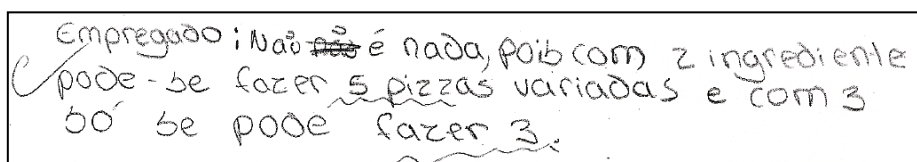 Empregado: Não é nada, pois com 2 ingrediente
pode-se fazer 5 pizzas variadas e com 3
só se pode fazer 3.